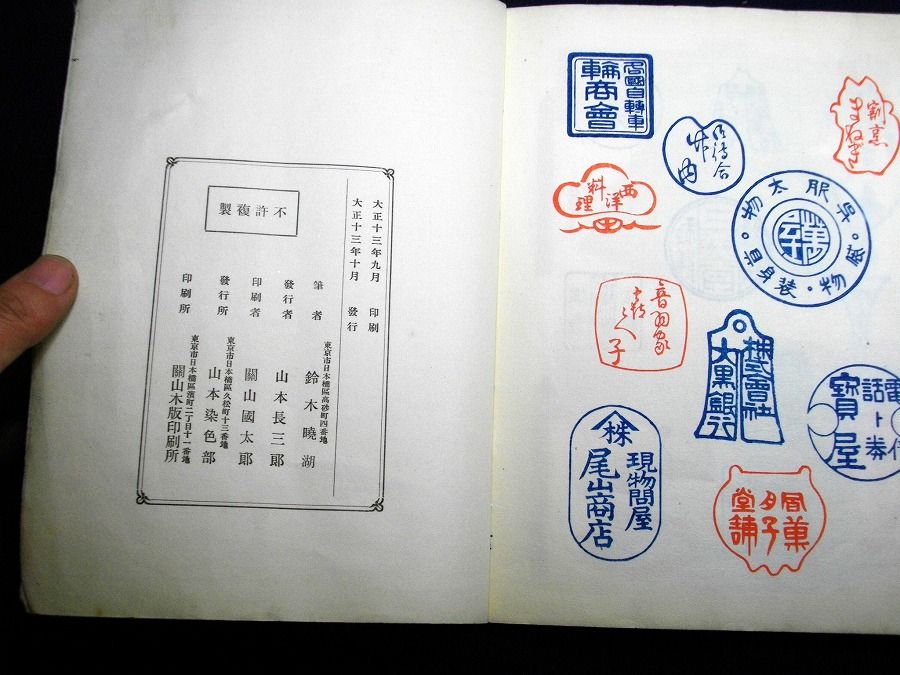 不許複製
大正十三年九月 印刷
大正十三年十月 發行
東京市日本橋區高砂町四番地
筆者 鈴木曉湖
發行者 山本長三郎
印刷者 關山國太郎
東京市日本橋區久松町十三番地
發行所 山本染色部
東京市日本橋區濱町二丁目十一番地
印刷所 關山木版印刷所
帝國自轉車
輪商會
御待合
竹内
割烹
まねぎ
西洋
料
理
呉服太物・質物・装身首・
音羽家
子
株式會社
大黒銀行
電話
ト券
寶屋
株
現物問屋
尾山商店
菓子
堂舗